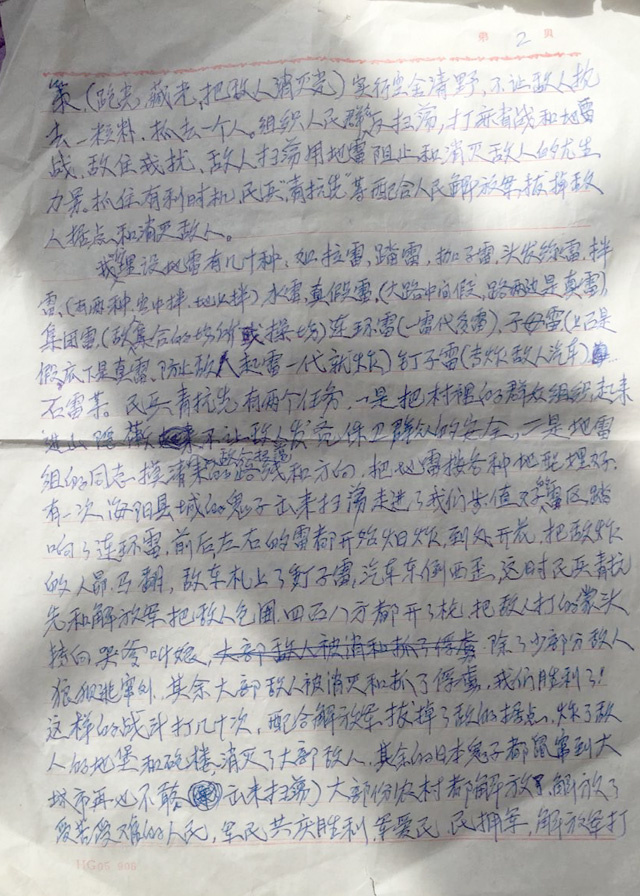 第 2 页
策（跑光，藏光，把敌人消灭光）实行空舍清野，不让敌人抢
去一粒料，抓去一个人。组织人民群众反扫荡，打麻雀战和地雷
战，敌住我扰，敌人扫荡用地雷阻止和消灭敌人的有生
力量。抓住有利时机，民兵“青抗先”等配合人民解放军，拔掉敌
人据点和消灭敌人。
我埋设地雷有几十种，如拉雷，踏雷，子雷，头发丝雷，拌
雷，（有两种，空中拌，地上拌）水雷，真假雷，（大路中间假，路两边是真雷）
集团雷，（敌集合的场所或操场）连环雷（一雷代多雷），子母雷（上面是
假底下是真雷，防止敌人起雷一代就炸）钉子雷（专炸敌人汽车）
石雷等。民兵青抗先有两个任务，一是把村裡的群众组织起来
进山隐藏起来不让敌人发觉，保卫群众的安全，二是地雷
组的同志摸清来的路线和方向，把地雷按各种地配埋好。
有一次海阳县城的鬼子出来扫荡走进了我们雷区，踏
响了连环雷，前后左右的雷都开始爆炸，到处开花，把敌炸
的人昂马翻，敌车札上了钉子雷，汽车东倒西歪，这时民兵青抗
先和解放军把敌人包围，四面八方都开了枪，把敌人打的蒙头
转向哭爹叫娘，大部敌人被消和抓了俘虏 除了少部分敌人
狼狈逃窜外，其余大部敌人被消灭和抓了俘虏，我们胜利了！
这样的战斗打几十次，配合解放军，拔掉了敌的据点，炸了敌
人的地堡和砲楼，消灭了大部敌人，其余的日本鬼子都鼠窜到大
城市再也不敢出来扫荡）大部份农村都解放了，解放了
受苦受难的人民，军民共庆胜利，军爱民，民拥军，解放军打